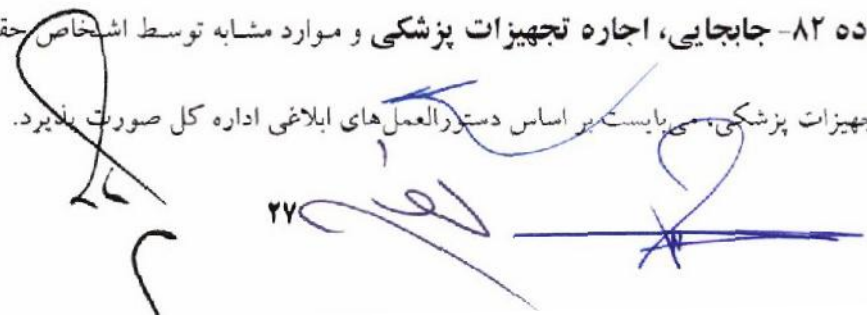 ده ۸۲- جابجایی، اجاره تجهیزات پزشکی و موارد مشابه توسط اشخاص حق
جهیزات پزشکی، می‌بایست بر اساس دستورالعمل‌های ابلاغی اداره کل صورت پذیرد.
۲۷